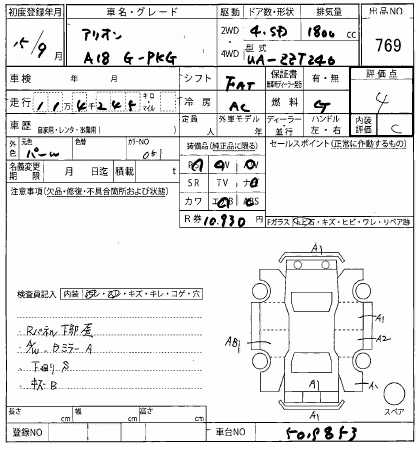 初度登録年月 車名・グレード 駆動 ドア数・形状 排気量 出品NO
15/9月 アリオン 2WD 4.5D 1800cc 769
A18 G-PKG 4WD 型式 UA-ZZT240
車検 年 月 シフト FAT 保証書 有・無 評価点
走行 114245 キロ マイル 冷房 AC 燃料 G 4
車歴 自家用・レンタ・ 定員 人 外車モデル 年 ディーラー 並行 ハンドル 左・右 内装評価 C
外色 元色 パール 色替 カラーNO 051 装備品(純正品に限る) セールスポイント(正常に作動するもの)
名義変更期限 月 日迄 積載 t
SR TV ナビ
注意事項(欠品・修復・不具合箇所および状態) カワ エアB ABS
R券 10.930
Fガラス キズ・ヒビ・ワレ・リペア跡
検査員記入 内装 キズ・キレ・コゲ・穴
A1
A1
AB1
A2
A1
A1
Rパネル下部歪
A/W・Dミラー A
下回りS
キズB
スペア
長さ cm 幅 cm 高さ cm
登録NO 車台NO